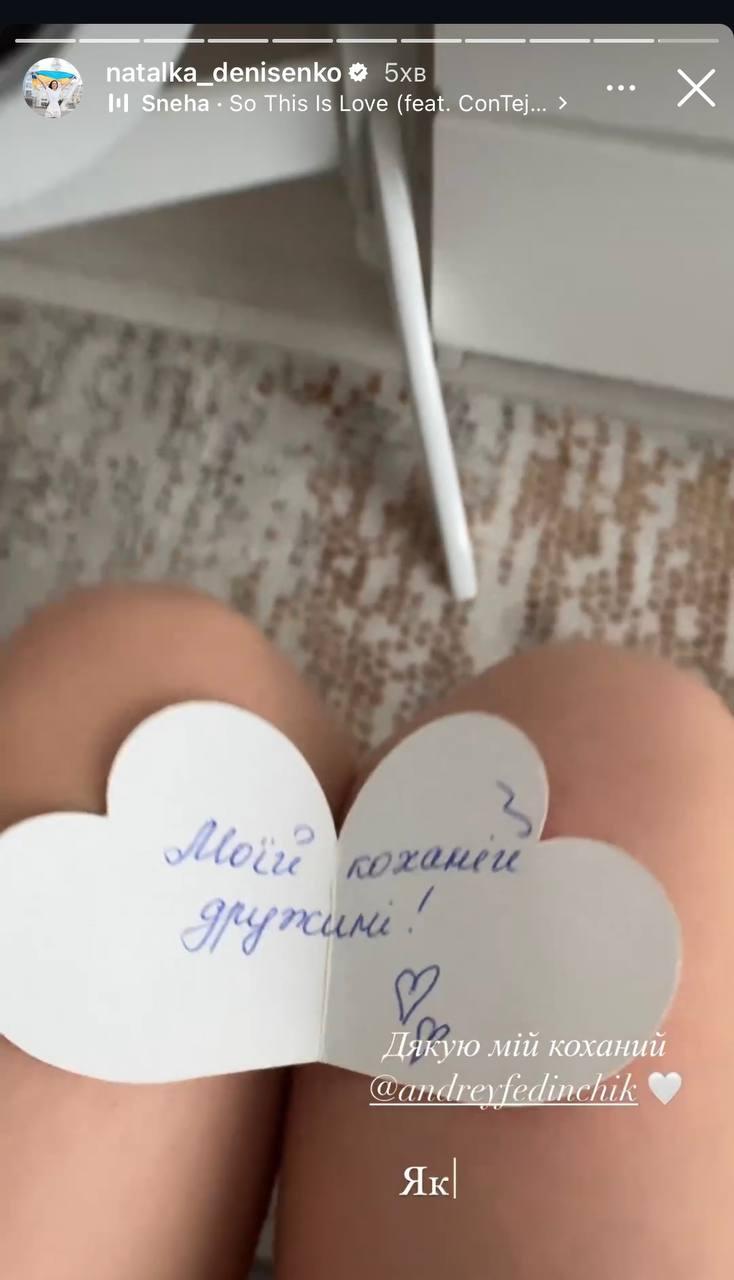 natalka_denisenko 5хв
Sneha · So This Is Love (feat. ConTej...
Моїй коханій
дружині!
Дякую мій коханий
@andreyfedinchik
Як